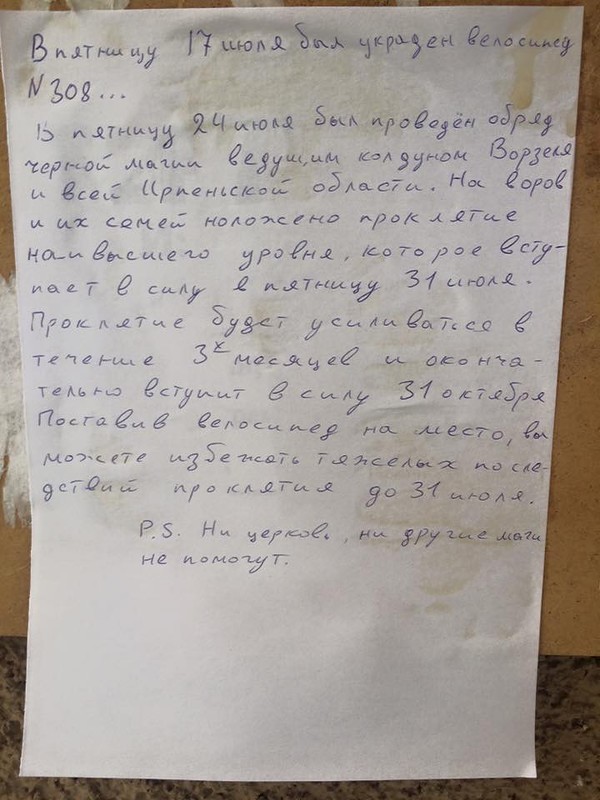 В пятницу 17 июля был украден велосипед
N 308...
В пятницу 24 июля был проведён обряд
черной магии ведущим колдуном Ворзеля
и всей Ирпеньской области. На воров
и их семей наложено проклятие
наивысшего уровня, которое всту-
пает в силу в пятницу 31 июля.
Проклятие будет усиливаться в
течение 3х месяцев и оконча-
тельно вступит в силу 31 октября
Поставив велосипед на место, вы
можете избежать тяжелых после-
дствий проклятия до 31 июля.
P.S. Ни церковь, ни другие маги
не помогут.